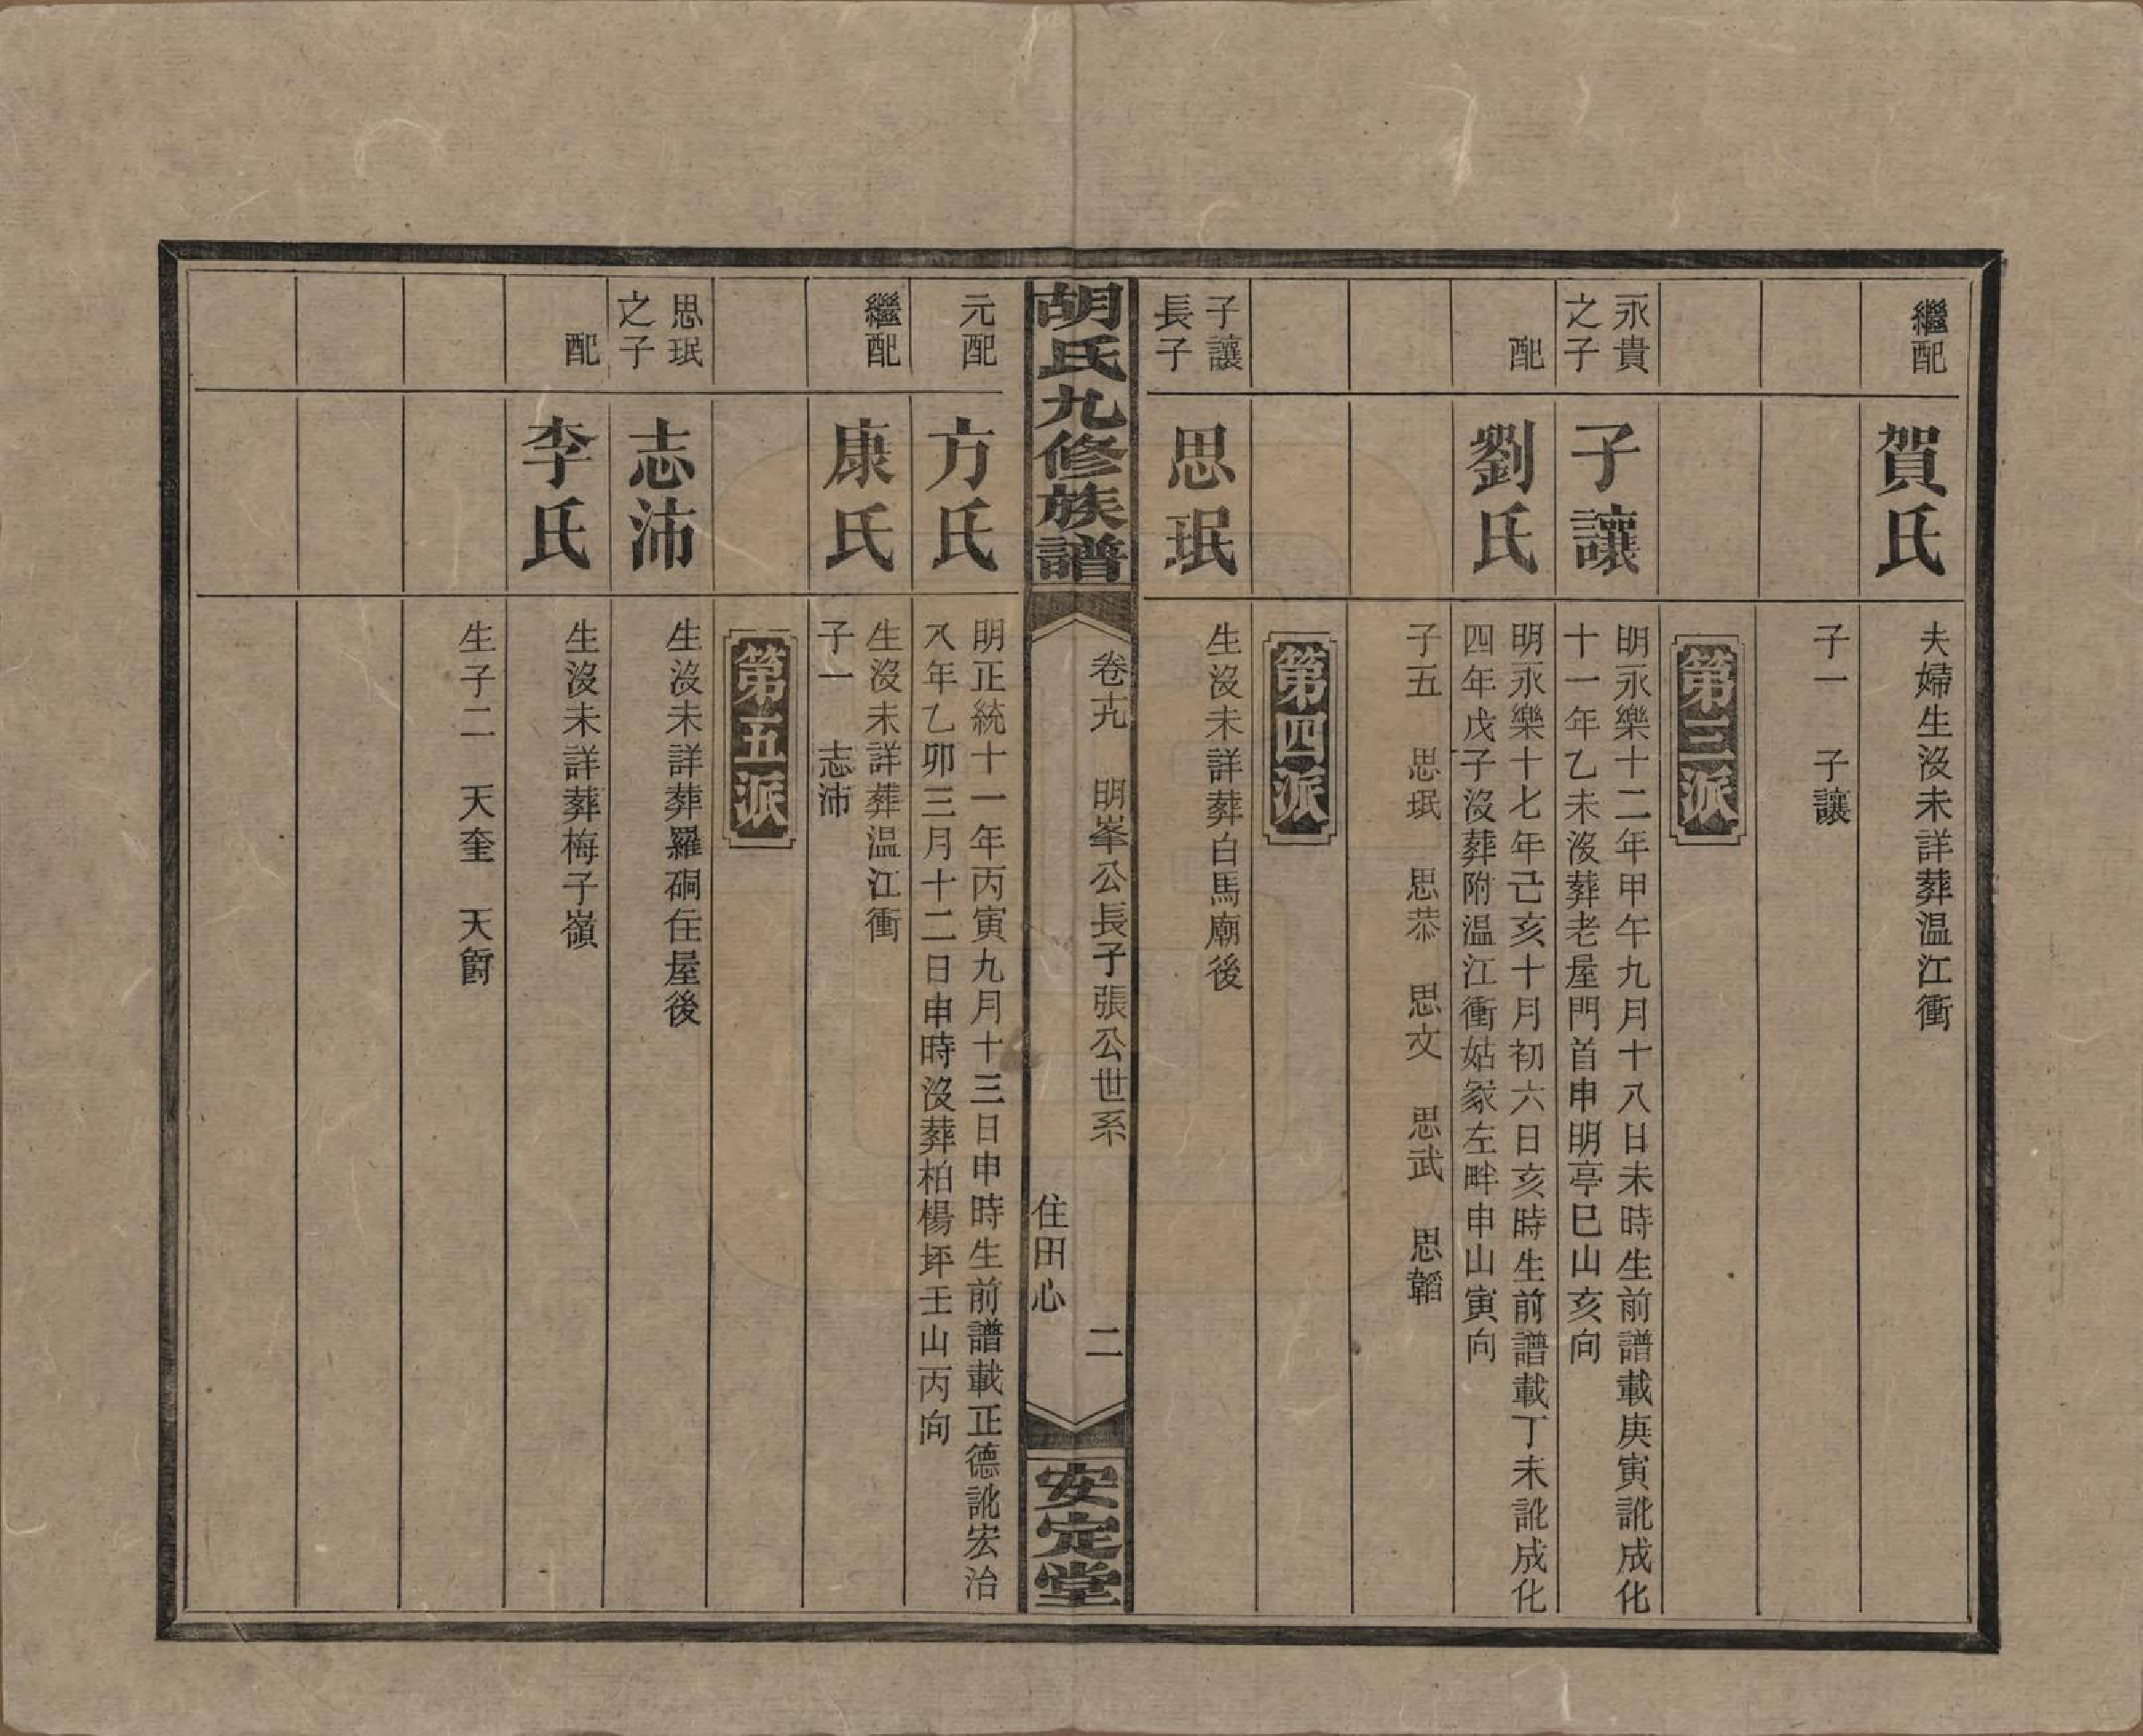 繼配
賀氏
夫婦生沒未詳葬温江衝
子一　子讓
第三派
永貴
之子
子讓
明永樂十二年甲午九月十八日未時生前譜載庚寅訛成化
十一年乙未沒葬老屋門首申明亭巳山亥向
配
劉氏
明永樂十七年己亥十月初六日亥時生前譜載丁未訛成化
四年戊子沒葬附温江衝姑冢左畔申山寅向
子五　思珉　思恭　思文　思武　思韜
第四派
子讓
長子
思珉
生沒未詳葬白馬廟後
胡氏九修族譜
卷十九　明峯公長子張公世系
二
住田心
安定堂
元配
方氏
明正統十一年丙寅九月十三日申時生前譜載正德訛宏治
八年乙卯三月十二日申時沒葬柏楊坪壬山丙向
繼配
康氏
生沒未詳葬温江衝
子一　志沛
第五派
思珉
之子
志沛
生沒未詳葬羅硐住屋後
配
李氏
生沒未詳葬梅子嶺
生子二　天奎　天爵